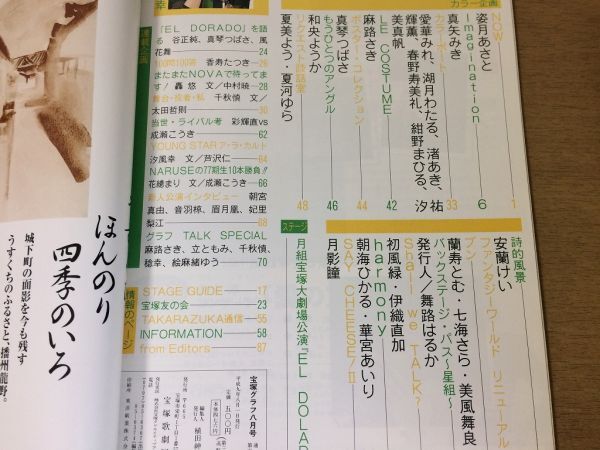 カラー企画
NOW
姿月あさと
1
Imagination
真矢みき
6
カラーポート
愛華みれ、湖月わたる、渚あき、祐
輝薫、春野寿美礼、紺野まひる、汐
美真帆
33
LE COSTUME
麻路さき
42
ポスター・コレクション
真琴つばさ
44
もうひとつのアングル
和央ようか
46
リクエスト談話室
夏美よう・夏河ゆら
48
詩的風景
安蘭けい
ファンタジーワールド リニューアル
ブン
蘭寿とむ・七海さら・美風舞良
バックステージ・パス〜星組〜
発行人／舞路はるか
Shall we TALK?
初風緑・伊織直加
harmony
朝海ひかる・華宮あいり
SAY CHEESE!Ⅱ
月影瞳
ステージ
月組宝塚大劇場公演『EL DOLAD
連載企画
幸
「EL DORADO」を語
る 谷正純、真琴つばさ、風
花舞 24
100問100答 香寿たつき 26
またまたNOVAで待ってま
す！ 轟悠 文／中村暁 28
舞台・役者・私 千秋慎 文／
太田哲則 30
当世・ライバル考 彩輝直vs
成瀬こうき 62
YOUNG STARア・ラ・カルド
汐風幸 文／芦沢仁 64
NARUSEの77期生10本勝負!!
花總まり 文／成瀬こうき 66
新人公演インタビュー 朝宮
真由、音羽椋、眉月凰、妃里
梨江 68
グラフ TALK SPECIAL
麻路さき、立ともみ、千秋慎、
稔幸、絵麻緒ゆう 70
情報のページ
STAGE GUIDE 17
宝塚友の会 23
TAKARAZUKA通信 55
INFORMATION 58
from Editors 87
宝塚グラフ八月号
定価 五〇〇円
編集人
発行人 植田紳
発行所 〒665
宝塚歌劇
ほんのり
四季のいろ
城下町の面影を今も残す
うすくちのふるさと、播州龍野。